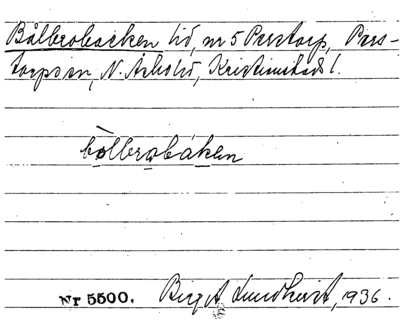 Bålbrobacken lid, nr 5 Perstorp, Pers-
torps sn, N. Åsbo hd, Kristianstads l.
bòlbrobáken
Nr 5500. Birgit Lundkvist, 1936.